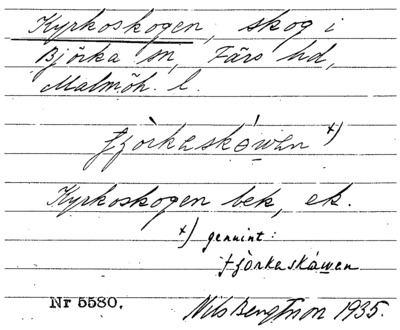 Kyrkoskogen, skog i
Björka sn, Färs hd,
Malmöh. l.
fjòrkaskówan x)
Kyrkoskogen bek, ek.
x) genuint:
fjòrkaskáwan
Nr 5580. Nils Bengtson 1935.